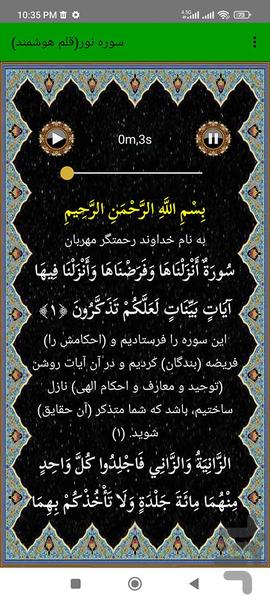 10:35 PM
4.5G
73
سوره نور(قلم هوشمند)
0m,3s
بِسْمِ اللَّهِ الرَّحْمَنِ الرَّحِيمِ
به نام خداوند رحمتگر مهربان
سُورَةٌ أَنْزَلْنَاهَا وَفَرَضْنَاهَا وَأَنْزَلْنَا فِيهَا
آيَاتٍ بَيِّنَاتٍ لَعَلَّكُمْ تَذَكَّرُونَ ﴿۱﴾
این سوره را فرستادیم و (احکامش را)
فریضه (بندگان) کردیم و در آن آیات روشن
(توحید و معارف و احکام الهی) نازل
ساختیم، باشد که شما متذکر (آن حقایق)
شوید. (۱)
الزَّانِيَةُ وَالزَّانِي فَاجْلِدُوا كُلَّ وَاحِدٍ
مِنْهُمَا مِائَةَ جَلْدَةٍ وَلَا تَأْخُذْكُمْ بِهِمَا